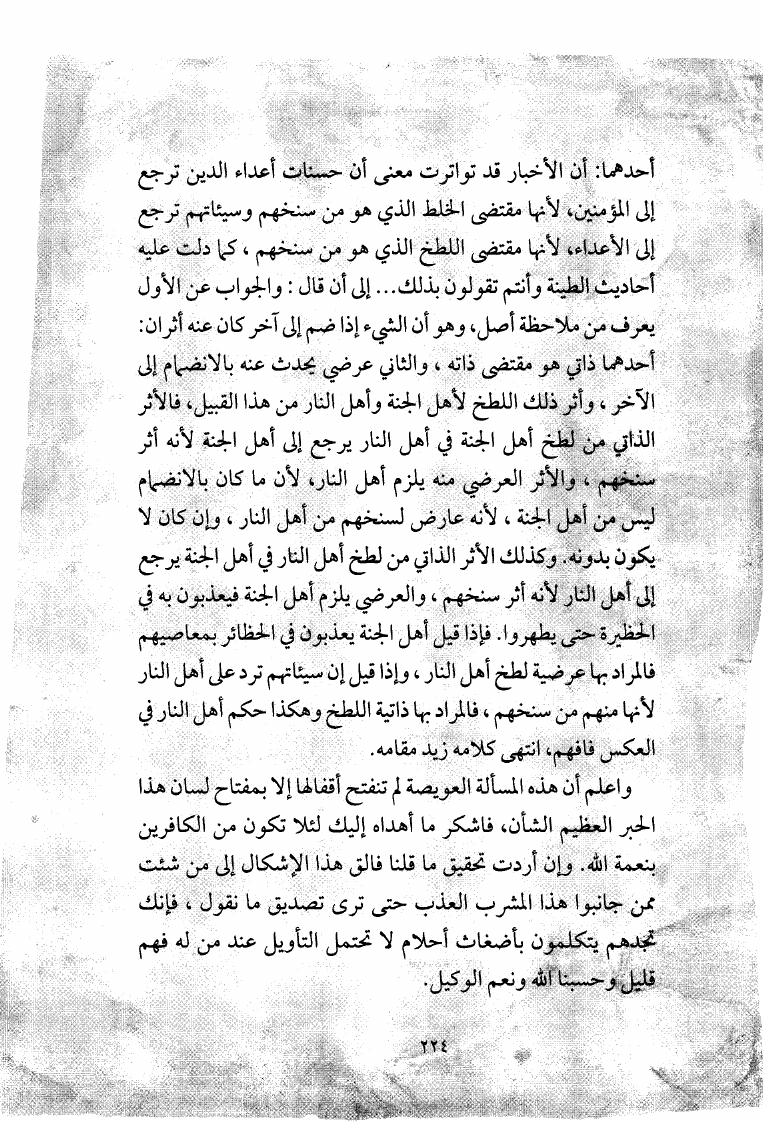 أحدهما: أن الأخبار قد تواترت معنى أن حسنات أعداء الدين ترجع
إلى المؤمنين، لأنها مقتضى الخلط الذي هو من سنخهم وسيئاتهم ترجع
إلى الأعداء، لأنها مقتضى اللطخ الذي هو من سنخهم ، كما دلت عليه
أحاديث الطينة وأنتم تقولون بذلك... إلى أن قال : والجواب عن الأول
يعرف من ملاحظة أصل، وهو أن الشيء إذا ضم إلى آخر كان عنه أثران:
أحدهما ذاتي هو مقتضى ذاته ، والثاني عرضي يحدث عنه بالانضمام إلى
الآخر ، وأثر ذلك اللطخ لأهل الجنة وأهل النار من هذا القبيل، فالأثر
الذاتي من لطخ أهل الجنة في أهل النار يرجع إلى أهل الجنة لأنه أثر
سنخهم ، والأثر العرضي منه يلزم أهل النار، لأن ما كان بالانضمام
ليس من أهل الجنة ، لأنه عارض لسنخهم من أهل النار ، وإن كان لا
يكون بدونه. وكذلك الأثر الذاتي من لطخ أهل النار في أهل الجنة يرجع
إلى أهل النار لأنه أثر سنخهم ، والعرضي يلزم أهل الجنة فيعذبون به في
الحظيرة حتى يطهروا. فإذا قيل أهل الجنة يعذبون في الحظائر بمعاصيهم
فالمراد بها عرضية لطخ أهل النار ، وإذا قيل إن سيئاتهم ترد على أهل النار
لأنها منهم من سنخهم ، فالمراد بها ذاتية اللطخ وهكذا حكم أهل النار في
العكس فافهم، انتهى كلامه زيد مقامه.
واعلم أن هذه المسألة العويصة لم تنفتح أقفالها إلا بمفتاح لسان هذا
الحبر العظيم الشأن، فاشكر ما أهداه إليك لئلا تكون من الكافرين
بنعمة الله. وإن أردت تحقيق ما قلنا فالق هذا الإشكال إلى من شئت
ممن جانبوا هذا المشرب العذب حتى ترى تصديق ما نقول ، فإنك
تجدهم يتكلمون بأضغاث أحلام لا تحتمل التأويل عند من له فهم
قليل وحسبنا الله ونعم الوكيل.
٢٢٤